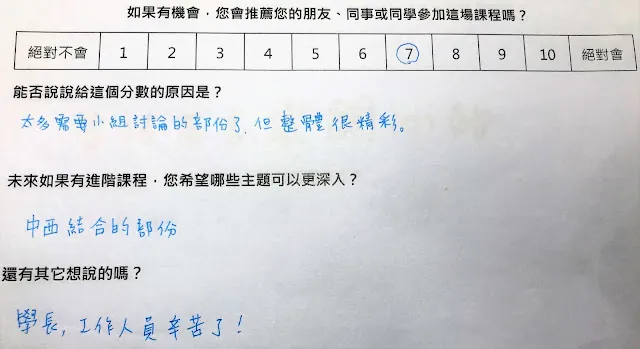 如果有機會，您會推薦您的朋友、同事或同學參加這場課程嗎？
絕對不會 1 2 3 4 5 6 7 8 9 10 絕對會
能否說說給這個分數的原因是？
太多需要小組討論的部份了，但整體很精彩。
未來如果有進階課程，您希望哪些主題可以更深入？
中西結合的部份
還有其它想說的嗎？
學長，工作人員辛苦了！